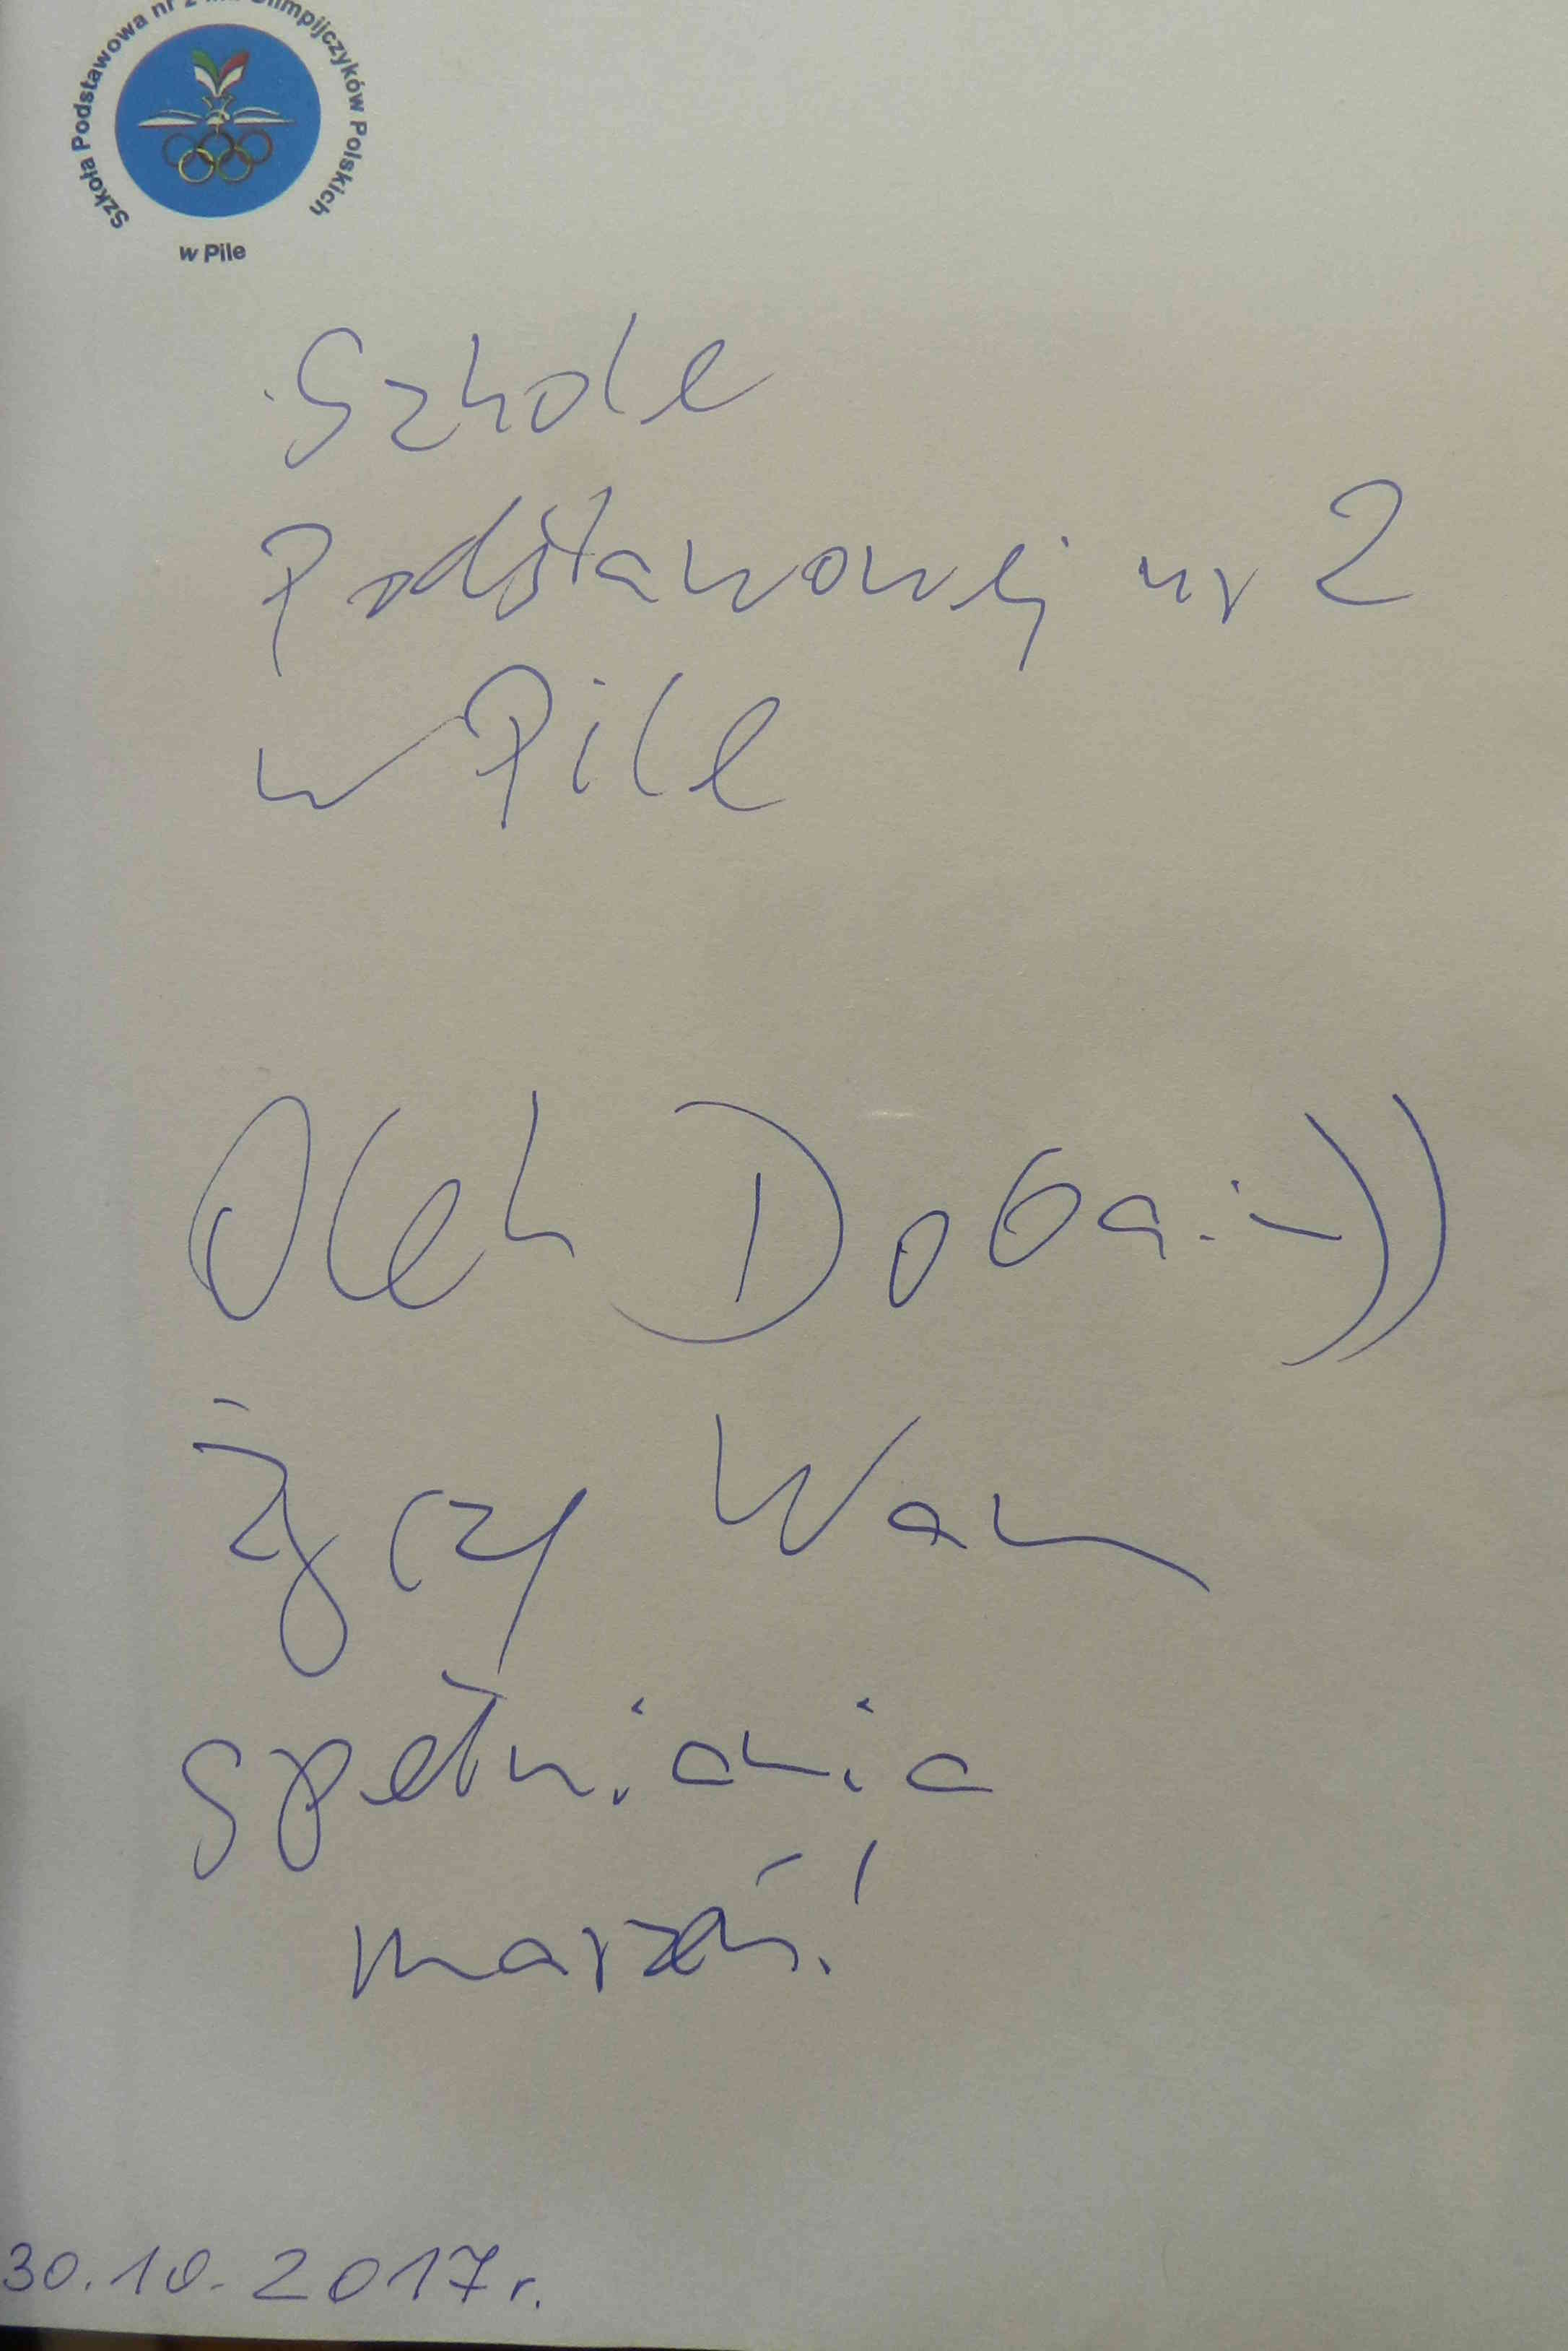 Szkoła Podstawowa nr 2 Olimpijczyków Polskich
w Pile
Szkole
Podstawowej nr 2
w Pile
Olek Doba :-))
życzy Wam
spełniania
marzeń!
30.10.2017r.